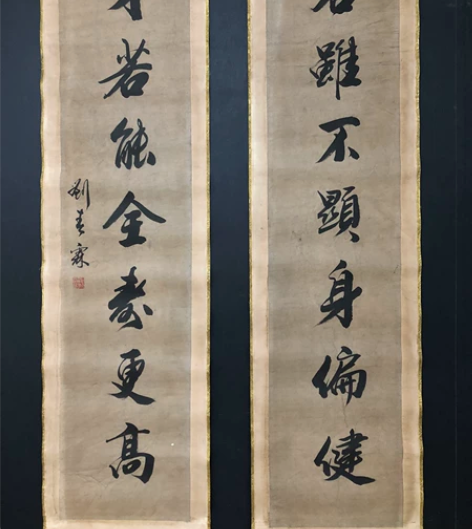 雖不顯身偏健
若能全壽更高
劉春霖